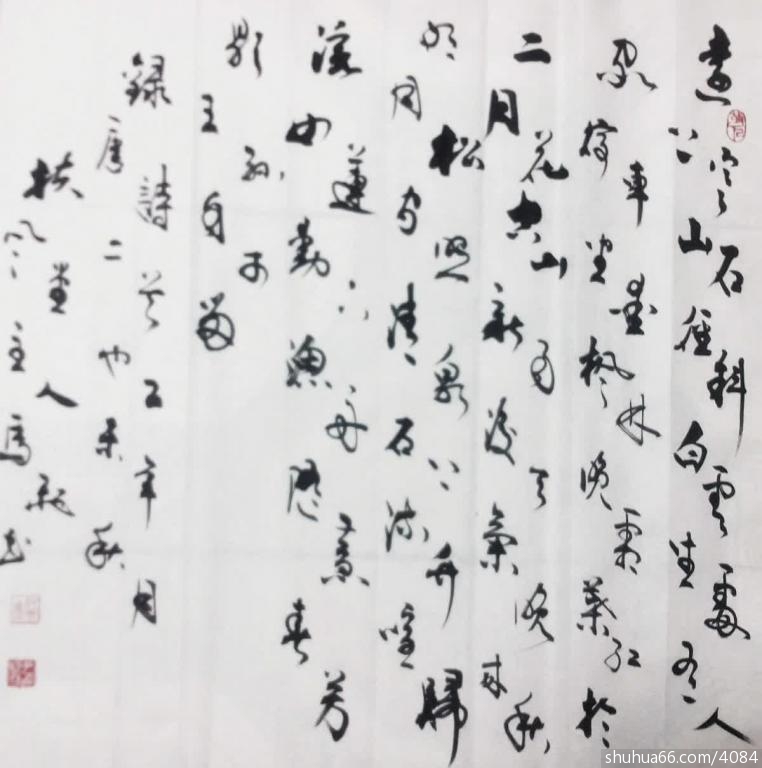 遠上寒山石徑斜白雲生處有人
家停車坐愛楓林晚霜葉紅於
二月花空山新雨後天氣晚来秋
明月松间照清泉石上流竹喧歸
浣女蓮動下漁舟随意春芳
歇王孫自可留
録唐詩二首也乙未年秋月
扶風堂主人馬书
shuhua66.com/4084